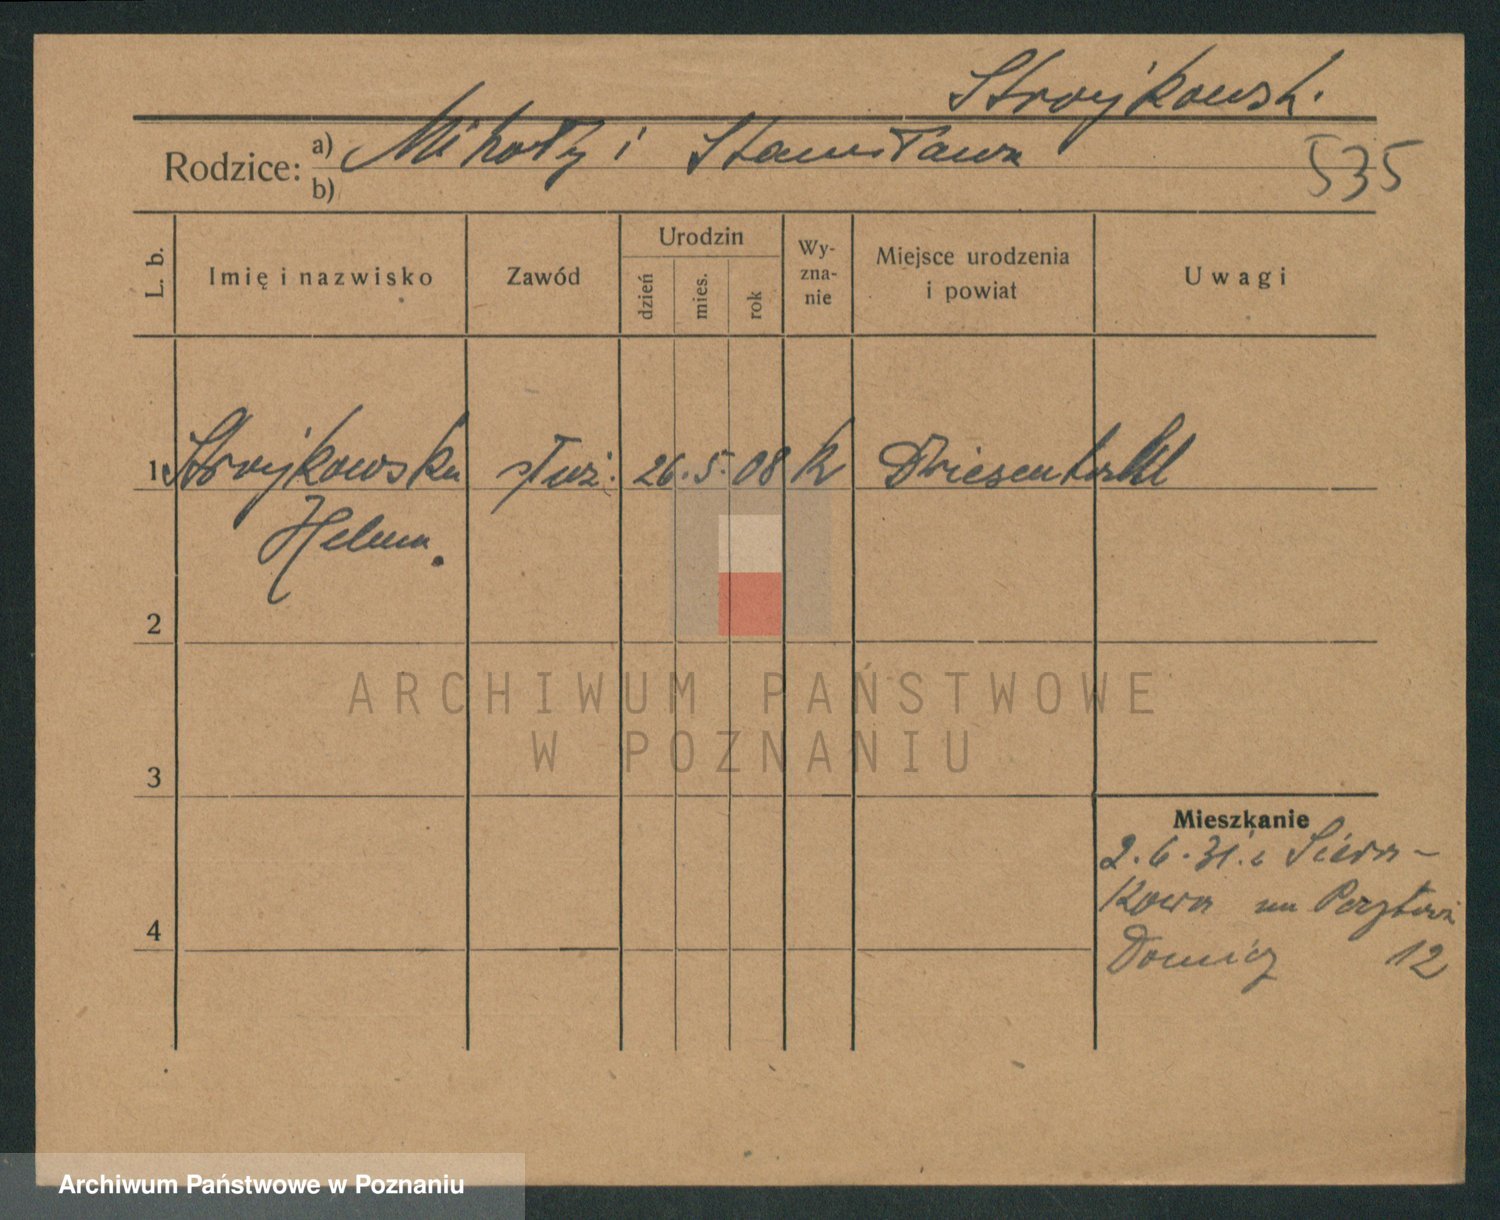 Stroykowsk.
Rodzice: a) Mikołaj i Stanisława
b)
535
L. b.
Imię i nazwisko
Zawód
Urodzin
dzień
mies.
rok
Wy-
zna-
nie
Miejsce urodzenia
i powiat
Uwagi
1 Stroykowska służ. 26. 5. 08 k
Helena.
2
3
4
Mieszkanie
2. 6. 31. z Siera-
kowa na
12
ARCHIWUM PAŃSTWOWE
W POZNANIU
Archiwum Państwowe w Poznaniu